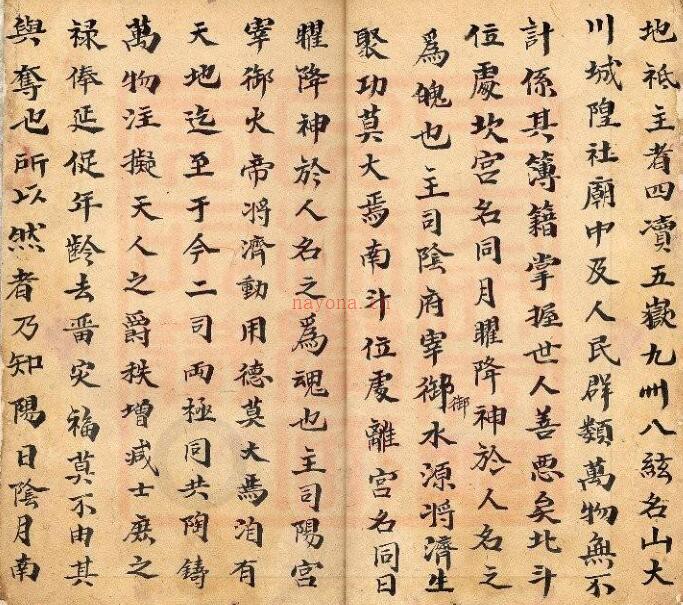 地祇主者四瀆五嶽九州八紘名山大
川城隍社廟中及人民群類萬物無不
計係其簿籍掌握世人善悪矣北斗
位處坎宮名同月曜降神於人名之
為魄也主司陰府宰御水源将濟生
御
聚功莫大焉南斗位處離宮名同日
曜降神於人名之為魂也主司陽宮
宰御火帝将濟動用德莫大焉洎有
天地迄至于今二司兩極同共陶鑄
萬物注擬天人之爵秩增減士庶之
禄俸延促年齡去畱灾福莫不由其
與奪也所以然者乃知陽日陰月南
nayona.cn